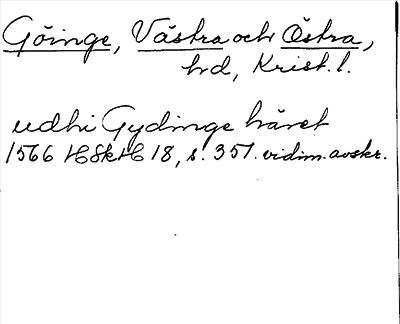 Göinge, Västra och Östra,
hrd, Krist. l.
udhi Gydinge häret
1566 HSkH 18, s. 351. vidim. avskr.